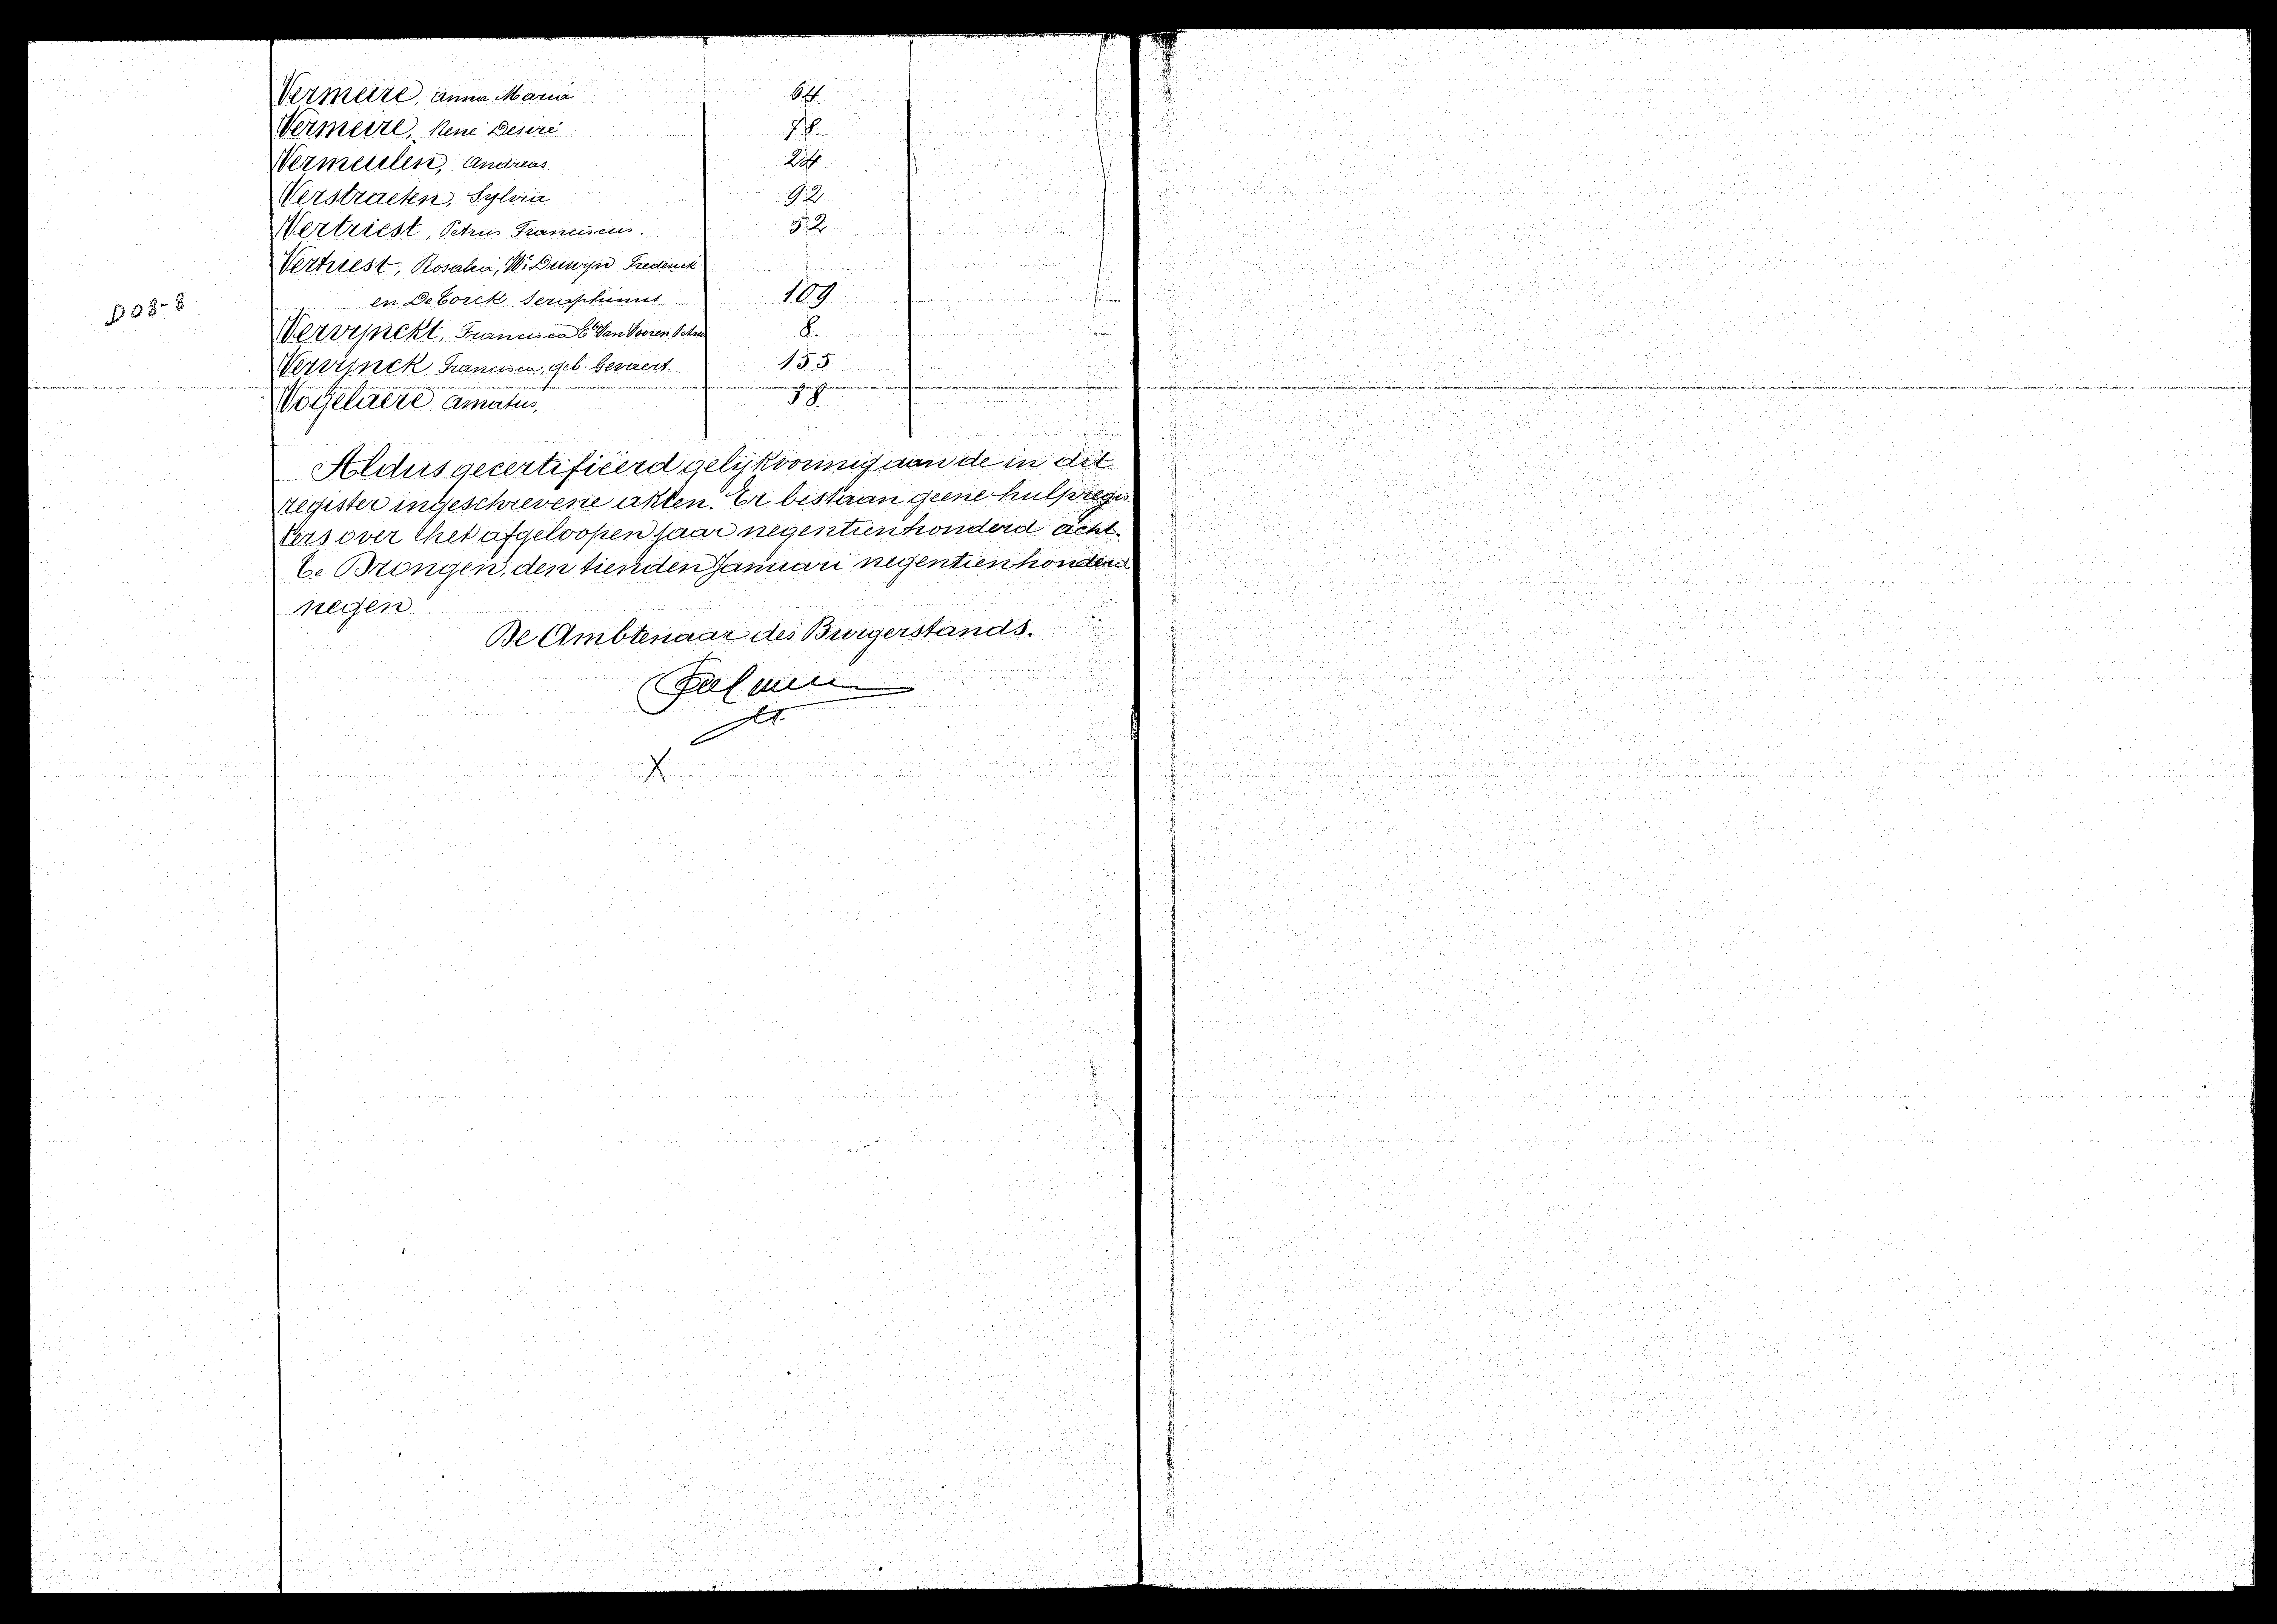 Vermeire, Anna Maria 64.
Vermeire, René Desiré 78.
Vermeulen, Andreas. 24
Verstraeten, Sylvia 92
Vertriest, Petrus Franciscus. 52
Vertriest, Rosalia, We Duwyn Frederick
en De Corck Seraphinus 109
D 08-8
Vervynckt, Francisca Ete Van Vooren Petrus 8.
Vervynck Francisca, geb. Gevaert. 155
Vogelaere Amatus, 38.
Aldus gecertifiëerd gelijkvormig aan de in dit
register ingeschrevene akten. Er bestaan geene hulpregis
ters over het afgeloopen jaar negentienhonderd acht.
Te Drongen, den tienden Januari negentienhonderd
negen
De Ambtenaar des Burgerstands.
X